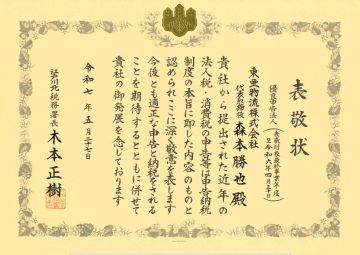 表敬状
優良申告法人
東亜物流株式会社
代表取締役 森本勝也殿
貴社から提出された近年の
法人税・消費税の申告等は申告納税
制度の本旨に即した内容のものと
認められここに深く敬意を表します
今後とも適正な申告と納税をされる
ことを期待するとともに併せて
貴社の御発展を念じております
令和七年五月二十七日
税務署長 木本正樹